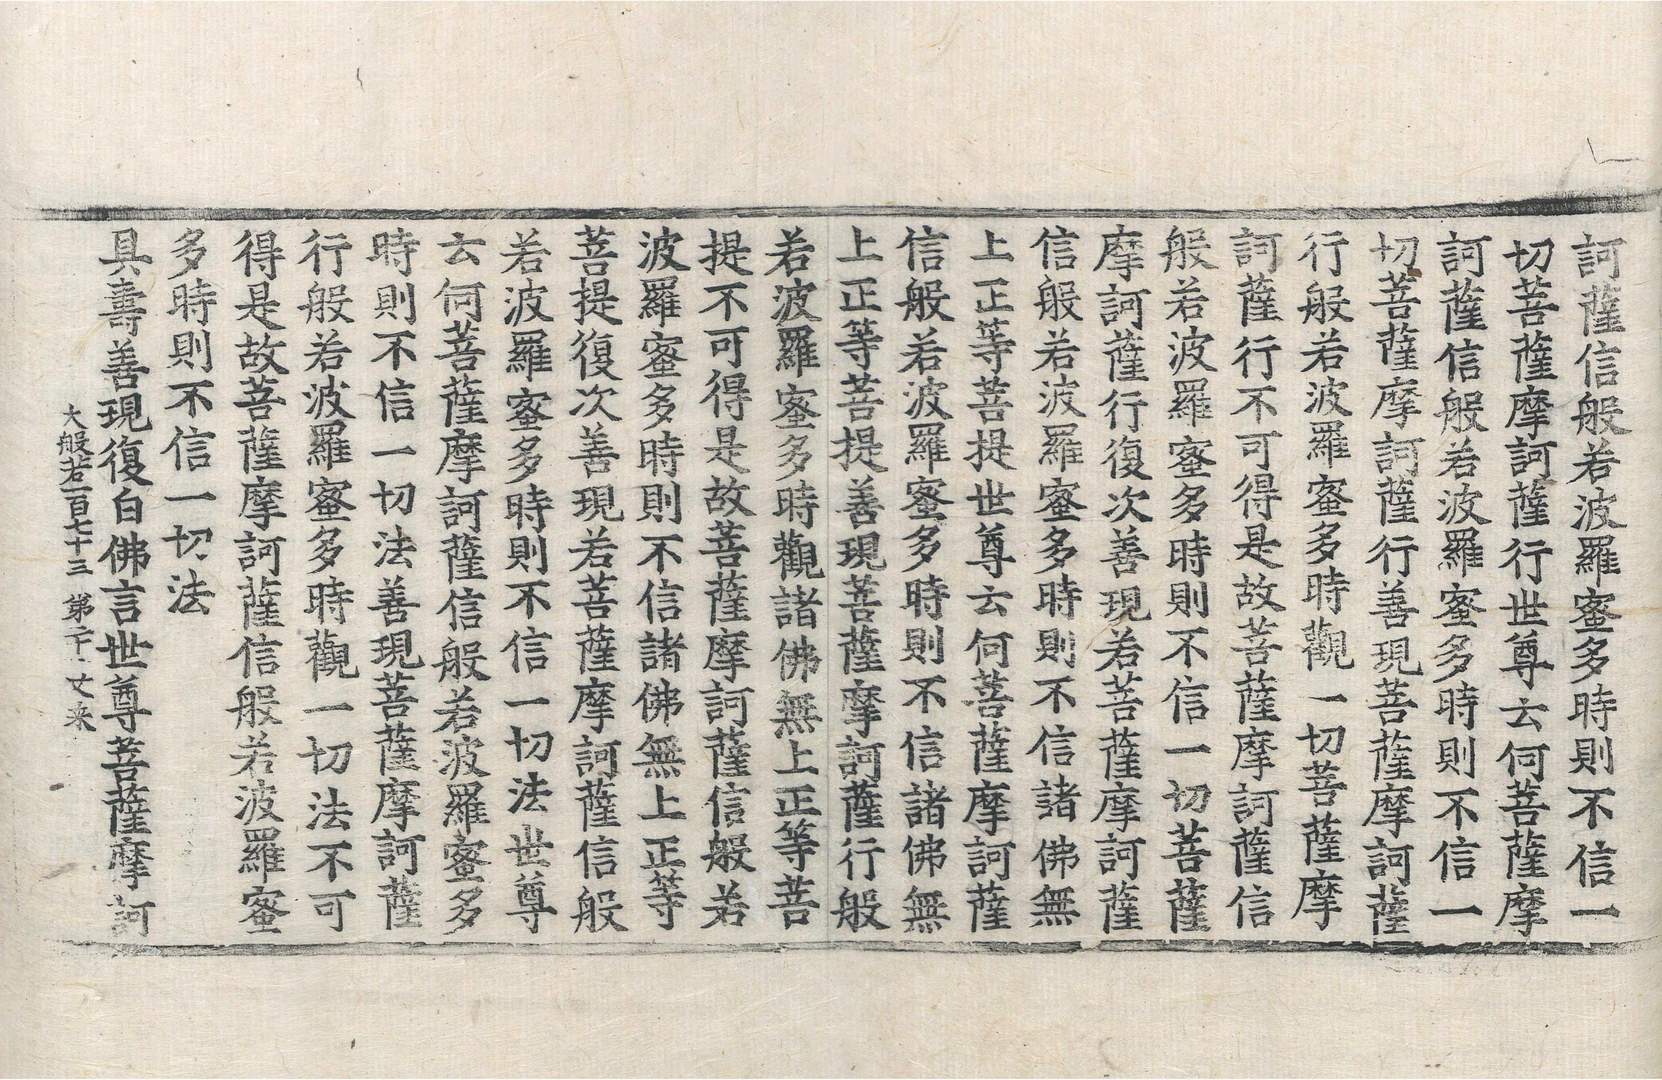 訶薩信般若波羅蜜多時則不信一
切菩薩摩訶薩行世尊云何菩薩摩
訶薩信般若波羅蜜多時則不信一
切菩薩摩訶薩行善現菩薩摩訶薩
行般若波羅蜜多時觀一切菩薩摩
訶薩行不可得是故菩薩摩訶薩信
般若波羅蜜多時則不信一切菩薩
摩訶薩行復次善現若菩薩摩訶薩
信般若波羅蜜多時則不信諸佛無
上正等菩提世尊云何菩薩摩訶薩
信般若波羅蜜多時則不信諸佛無
上正等菩提善現菩薩摩訶薩行般
若波羅蜜多時觀諸佛無上正等菩
提不可得是故菩薩摩訶薩信般若
波羅蜜多時則不信諸佛無上正等
菩提復次善現若菩薩摩訶薩信般
若波羅蜜多時則不信一切法世尊
云何菩薩摩訶薩信般若波羅蜜多
時則不信一切法善現菩薩摩訶薩
行般若波羅蜜多時觀一切法不可
得是故菩薩摩訶薩信般若波羅蜜
多時則不信一切法
具壽善現復白佛言世尊菩薩摩訶
大般若一百七十三 第二十丈 来